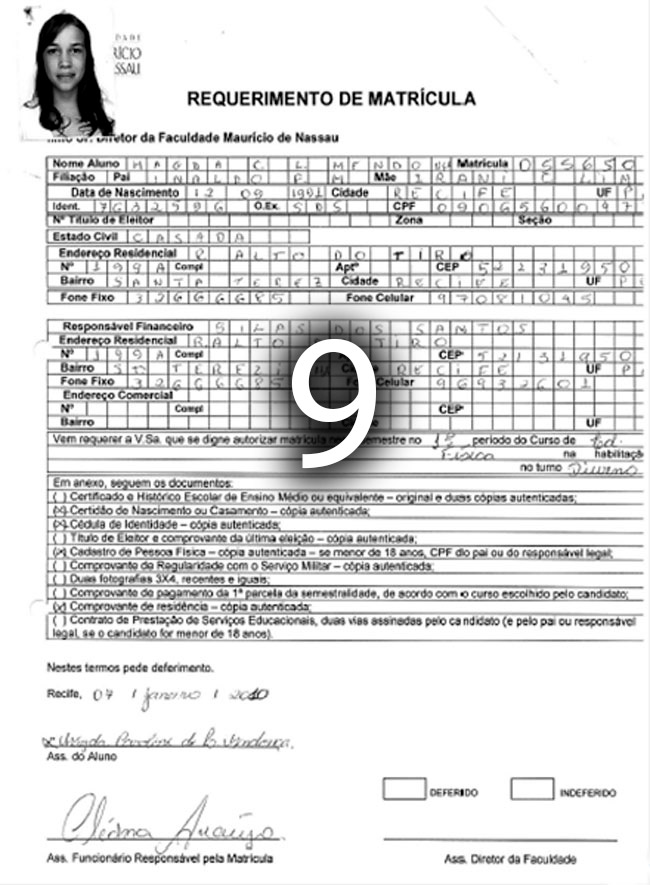 DADE
RÍCIO
SSAU
REQUERIMENTO DE MATRÍCULA
Diretor da Faculdade Maurício de Nassau
Nome Aluno MAGDA C. L. MENDO Matrícula 055650
Filiação Pai INALDO Mãe IRANI
Data de Nascimento 12 09 1991 Cidade RECIFE UF P
Ident. 7632596 O.Ex. SDS CPF 0906560097
Nº Título de Eleitor Zona Seção
Estado Civil CASADA
Endereço Residencial R ALTO DO TIRO
Nº 199A Compl Aptº CEP 52231950
Bairro SANTA TEREZ Cidade RECIFE UF P
Fone Fixo 32666685 Fone Celular 97081045
Responsável Financeiro SILAS DOS SANTOS
Endereço Residencial R ALTO TIRO
Nº 199A Compl CEP 52131950
Bairro TEREZI RECIFE UF P
Fone Fixo 32666685 Celular 96932601
Endereço Comercial
Nº Compl CEP
Bairro UF
9
Vem requerer a V.Sa. que se digne autorizar matrícula semestre no 1º período do Curso de Ed.
Física na habilitaçã
no turno Diurno
Em anexo, seguem os documentos:
( ) Certificado e Histórico Escolar de Ensino Médio ou equivalente – original e duas cópias autenticadas;
(x) Certidão de Nascimento ou Casamento – cópia autenticada;
(x) Cédula de Identidade – cópia autenticada;
( ) Título de Eleitor e comprovante da última eleição – cópia autenticada;
(x) Cadastro de Pessoa Física – cópia autenticada – se menor de 18 anos, CPF do pai ou do responsável legal;
( ) Comprovante de Regularidade com o Serviço Militar – cópia autenticada;
( ) Duas fotografias 3X4, recentes e iguais;
( ) Comprovante de pagamento da 1ª parcela da semestralidade, de acordo com o curso escolhido pelo candidato;
(x) Comprovante de residência – cópia autenticada;
( ) Contrato de Prestação de Serviços Educacionais, duas vias assinadas pelo candidato (e pelo pai ou responsável
legal, se o candidato for menor de 18 anos).
Nestes termos pede deferimento.
Recife, 07 / janeiro / 2010
Magda Caroline de L. Mendonça
Ass. do Aluno
DEFERIDO INDEFERIDO
Araújo
Ass. Funcionário Responsável pela Matrícula Ass. Diretor da Faculdade